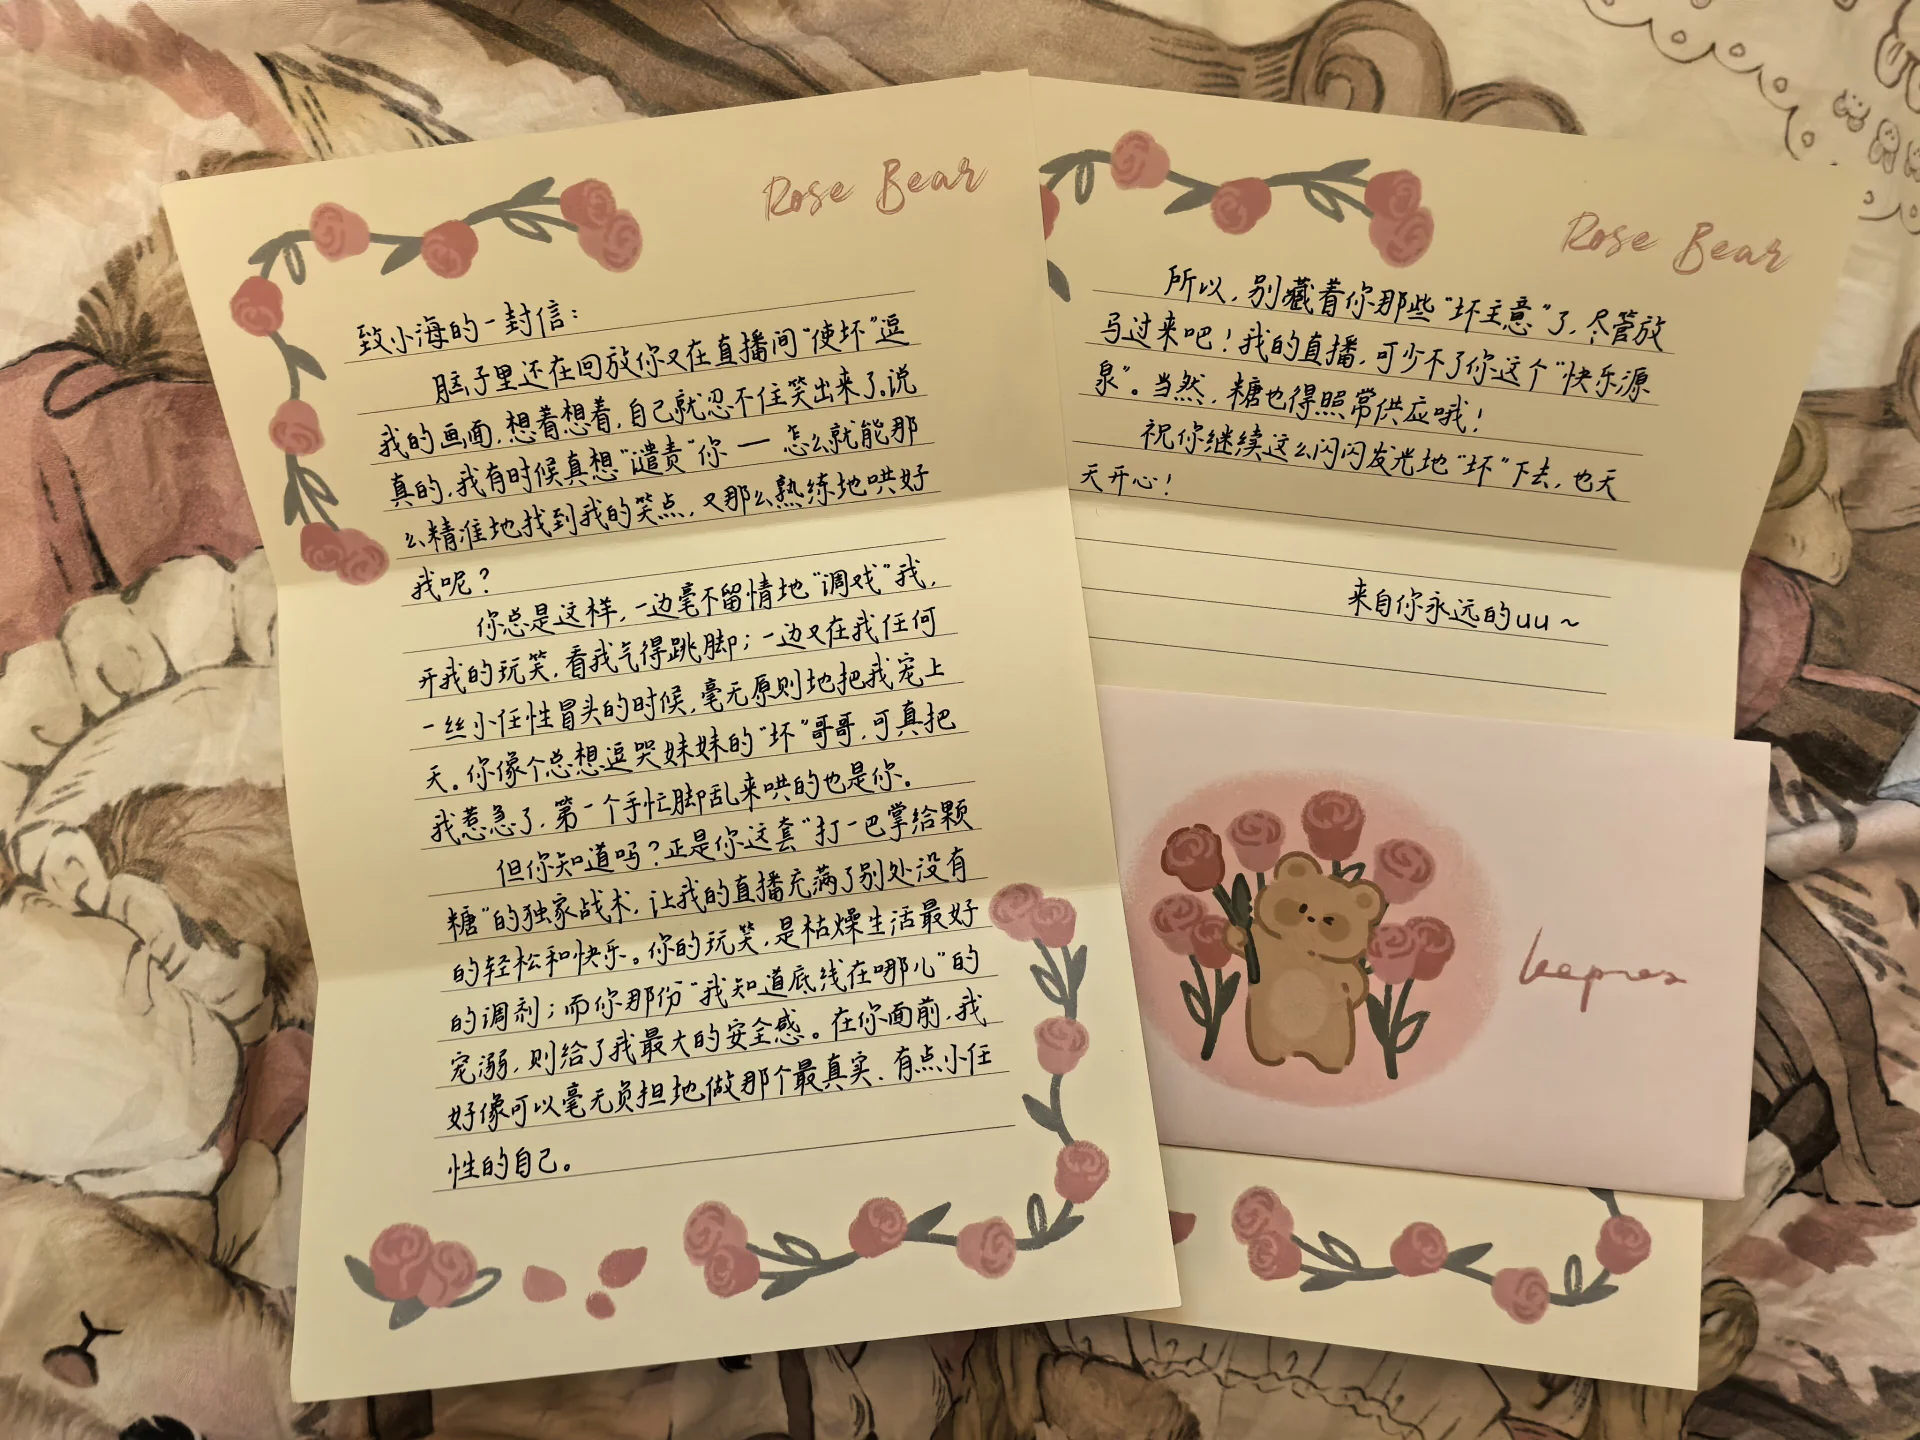 Rose Bear
致小海的一封信：
脑子里还在回放你又在直播间“使坏”逗
我的画面，想着想着，自己就忍不住笑出来了。说
真的，我有时候真想“谴责”你 — 怎么就能那
么精准地找到我的笑点，又那么熟练地哄好
我呢？
你总是这样，一边毫不留情地“调戏”我，
开我的玩笑，看我气得跳脚；一边又在我任何
一丝小任性冒头的时候，毫无原则地把我宠上
天。你像个总想逗哭妹妹的“坏”哥哥，可真把
我惹急了，第一个手忙脚乱来哄的也是你。
但你知道吗？正是你这套“打一巴掌给颗
糖”的独家战术，让我的直播充满了别处没有
的轻松和快乐。你的玩笑，是枯燥生活最好
的调剂；而你那份“我知道底线在哪儿”的
宠溺，则给了我最大的安全感。在你面前，我
好像可以毫无负担地做那个最真实、有点小任
性的自己。
Rose Bear
所以，别藏着你那些“坏主意”了，尽管放
马过来吧！我的直播，可少不了你这个“快乐源
泉”。当然，糖也得照常供应哦！
祝你继续这么闪闪发光地“坏”下去，也天
天开心！
来自你永远的uu～